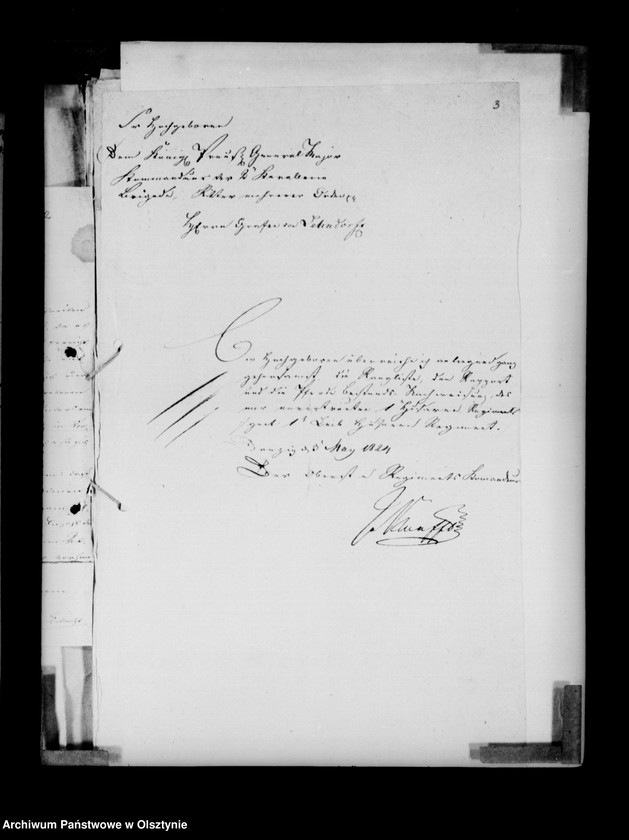 3
Sr Hochgeboren
Dem Königl Preuß General Major
Kommandeur der 2 Kavallerie
Brigade, Ritter mehrerer Orden
Herrn Grafen v Lehndorff
Ew Hochgeboren überreiche ich anliegend ganz
gehorsamst die Rangliste, den Rapport
und die Pferde bestands Nachweisung des
mir anvertrauten 1 Husaren Regiments
1 Leib Husaren Regiment.
Danzig d 5 May 1824
Der Oberst u Regiments Komandeur
Archiwum Państwowe w Olsztynie